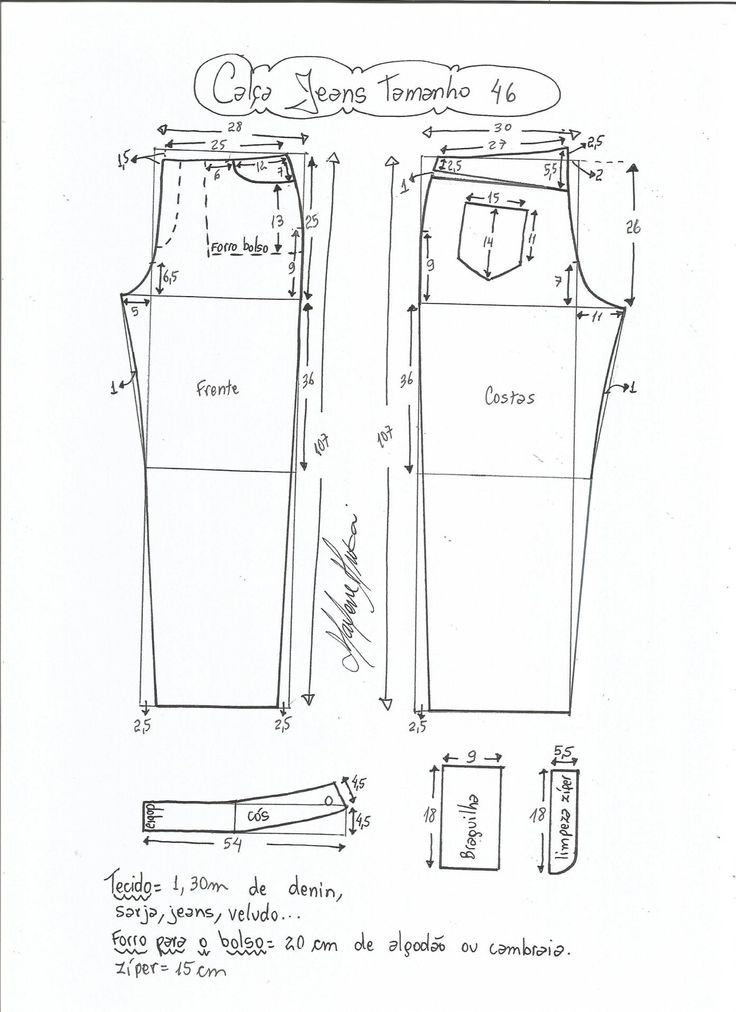 Calça Jeans Tamanho 46
28
25
1,5
6
12
7
13
25
Forro bolso
9
6,5
5
1
Frente
36
107
2,5
2,5
30
27
2,5
2,5
5,5
2
1
15
14
11
26
9
7
11
36
107
Costas
1
2,5
4,5
dobra
cós
4,5
54
9
18
Braguilha
5,5
18
limpeza zíper
Tecido= 1,30m de denin,
sarja, jeans, veludo...
Forro para o bolso= 20 cm de algodão ou cambraia.
zíper= 15 cm